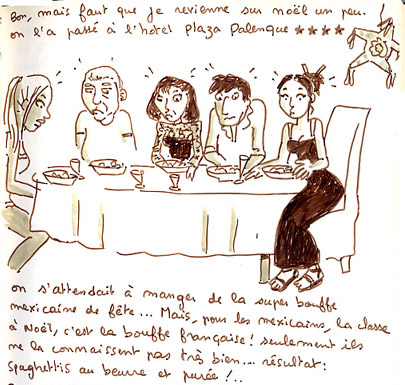 Bon, mais faut que je revienne sur noël un peu.
on l'a passé à l'hotel Plaza Palenque ★★★★
on s'attendait à manger de la super bouffe
mexicaine de fête... Mais, pour les mexicains, la classe
à Noël, c'est la bouffe française! seulement ils
ne la connaissent pas très bien... résultat:
spaghettis au beurre et purée!..